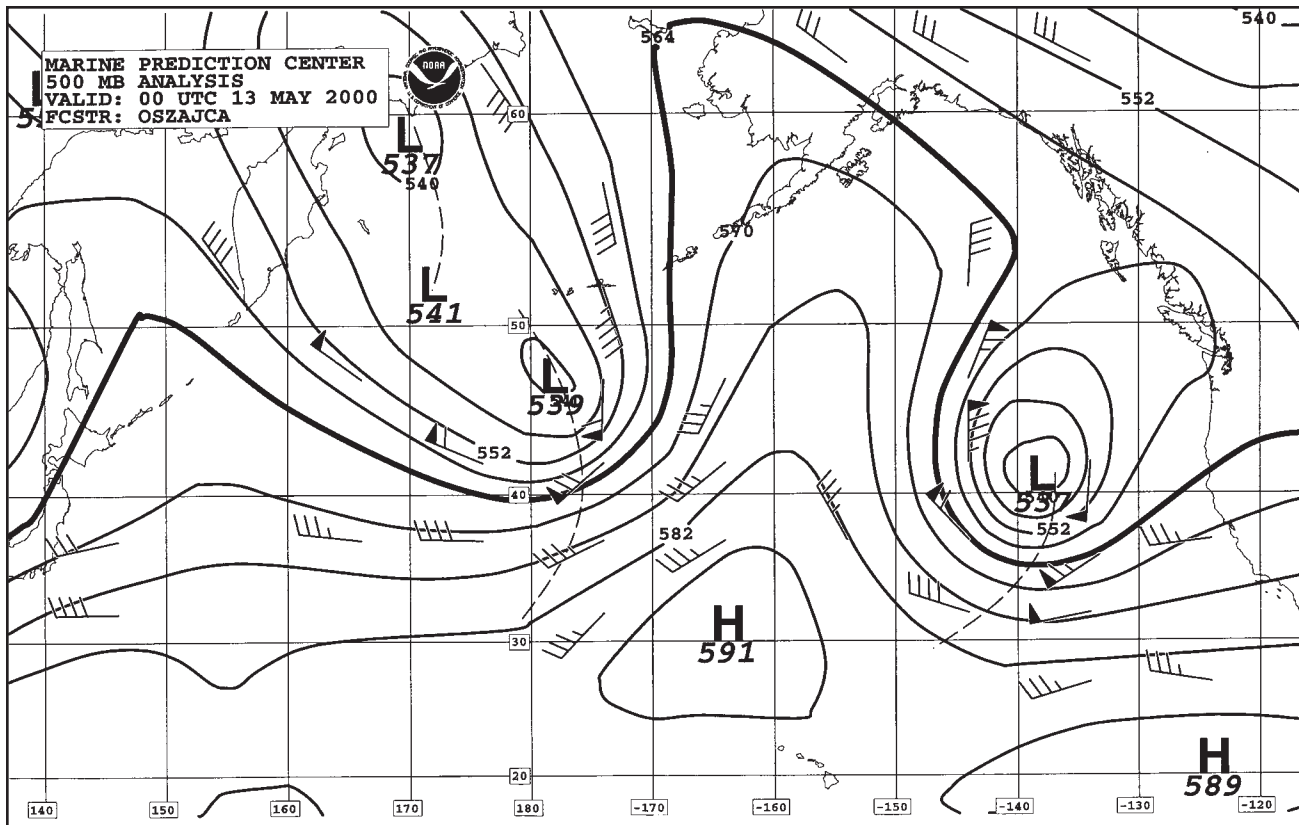 540
564
MARINE PREDICTION CENTER
500 MB ANALYSIS
VALID: 00 UTC 13 MAY 2000
FCSTR: OSZAJCA
NOAA
L
552
60
L
537
540
570
L
541
50
L
539
552
L
537
40
552
582
H
591
30
H
589
20
140
150
160
170
180
-170
-160
-150
-140
-130
-120